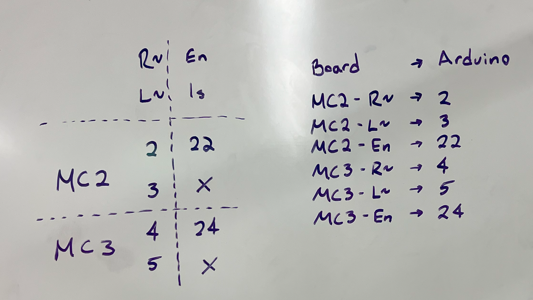 R~ En
L~ Is
MC2
2 22
3 X
MC3
4 24
5 X
Board → Arduino
MC2-R~ → 2
MC2-L~ → 3
MC2-En → 22
MC3-R~ → 4
MC3-L~ → 5
MC3-En → 24